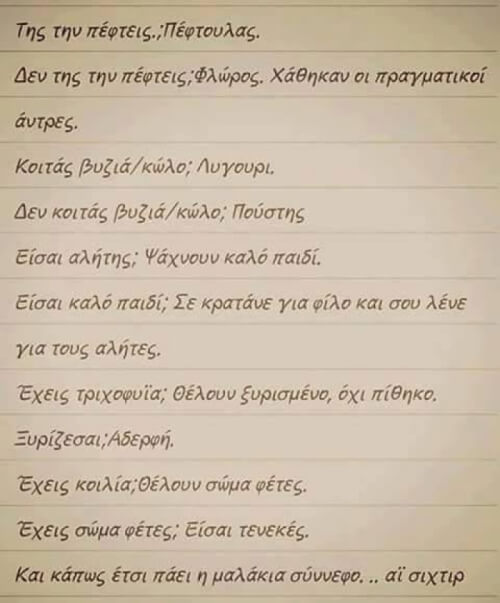 Της την πέφτεις.;Πέφτουλας.
Δεν της την πέφτεις;Φλώρος. Χάθηκαν οι πραγματικοί
άντρες.
Κοιτάς βυζιά/κώλο; Λυγουρι.
Δεν κοιτάς βυζιά/κώλο; Πούστης
Είσαι αλήτης; Ψάχνουν καλό παιδί.
Είσαι καλό παιδί; Σε κρατάνε για φίλο και σου λένε
για τους αλήτες.
Έχεις τριχοφυϊα; Θέλουν ξυρισμένο, όχι πίθηκο.
Ξυρίζεσαι;Αδερφή.
Έχεις κοιλία;Θέλουν σώμα φέτες.
Έχεις σώμα φέτες; Είσαι τενεκές.
Και κάπως έτσι πάει η μαλάκια σύννεφο. .. αϊ σιχτιρ